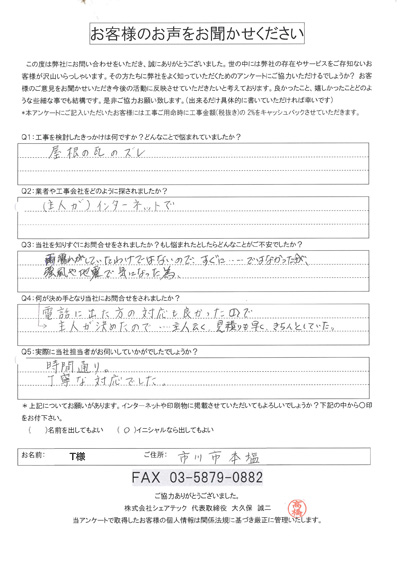 お客様のお声をお聞かせください
この度は弊社にお問い合わせをいただき、誠にありがとうございました。世の中には弊社の存在やサービスをご存知ないお
客様が沢山いらっしゃいます。その方たちに弊社をよく知っていただくためのアンケートにご協力いただけるでしょうか？ お客
様のご意見をお聞かせいただき今後の活動に反映させていきたいと考えております。良かったこと、嬉しかったことどのよ
うな些細な事でも結構です。是非ご協力お願い致します。（出来るだけ具体的に書いていただければ幸いです）
*本アンケートにご記入いただいたお客様には工事ご用命時に工事金額(税抜き)の 2%をキャッシュバックさせていただきます。
Q1:工事を検討したきっかけは何ですか？どんなことで悩まれていましたか？
屋根の瓦のズレ
Q2:業者や工事会社をどのように探されましたか？
(主人が) インターネットで
Q3:当社を知りすぐにお問合せをされましたか？もし悩まれたとしたらどんなことがご不安でしたか？
雨漏れがしていたわけではないので、すぐに……ではなかったが、
強風や地震で気になった為。
Q4:何が決め手となり当社にお問合せをされましたか？
電話に出た方の対応も良かったので
主人が決めたので …主人いわく、見積りも早く、きちんとしていた。
Q5:実際に当社担当者がお伺いしていかがでしたでしょうか？
時間通り。
丁寧な対応でした。
＊上記についてお願いがあります。インターネットや印刷物に掲載させていただいてもよろしいでしょうか？下記の中から〇印
をお付下さい。
（ ）名前を出してもよい （ O ）イニシャルなら出してもよい
お名前: T様 ご住所: 市川市本塩
FAX 03-5879-0882
ご協力ありがとうございました。
株式会社シェアテック 代表取締役 大久保 誠二
高橋
当アンケートで取得したお客様の個人情報は関係法規に基づき厳正に管理いたします。